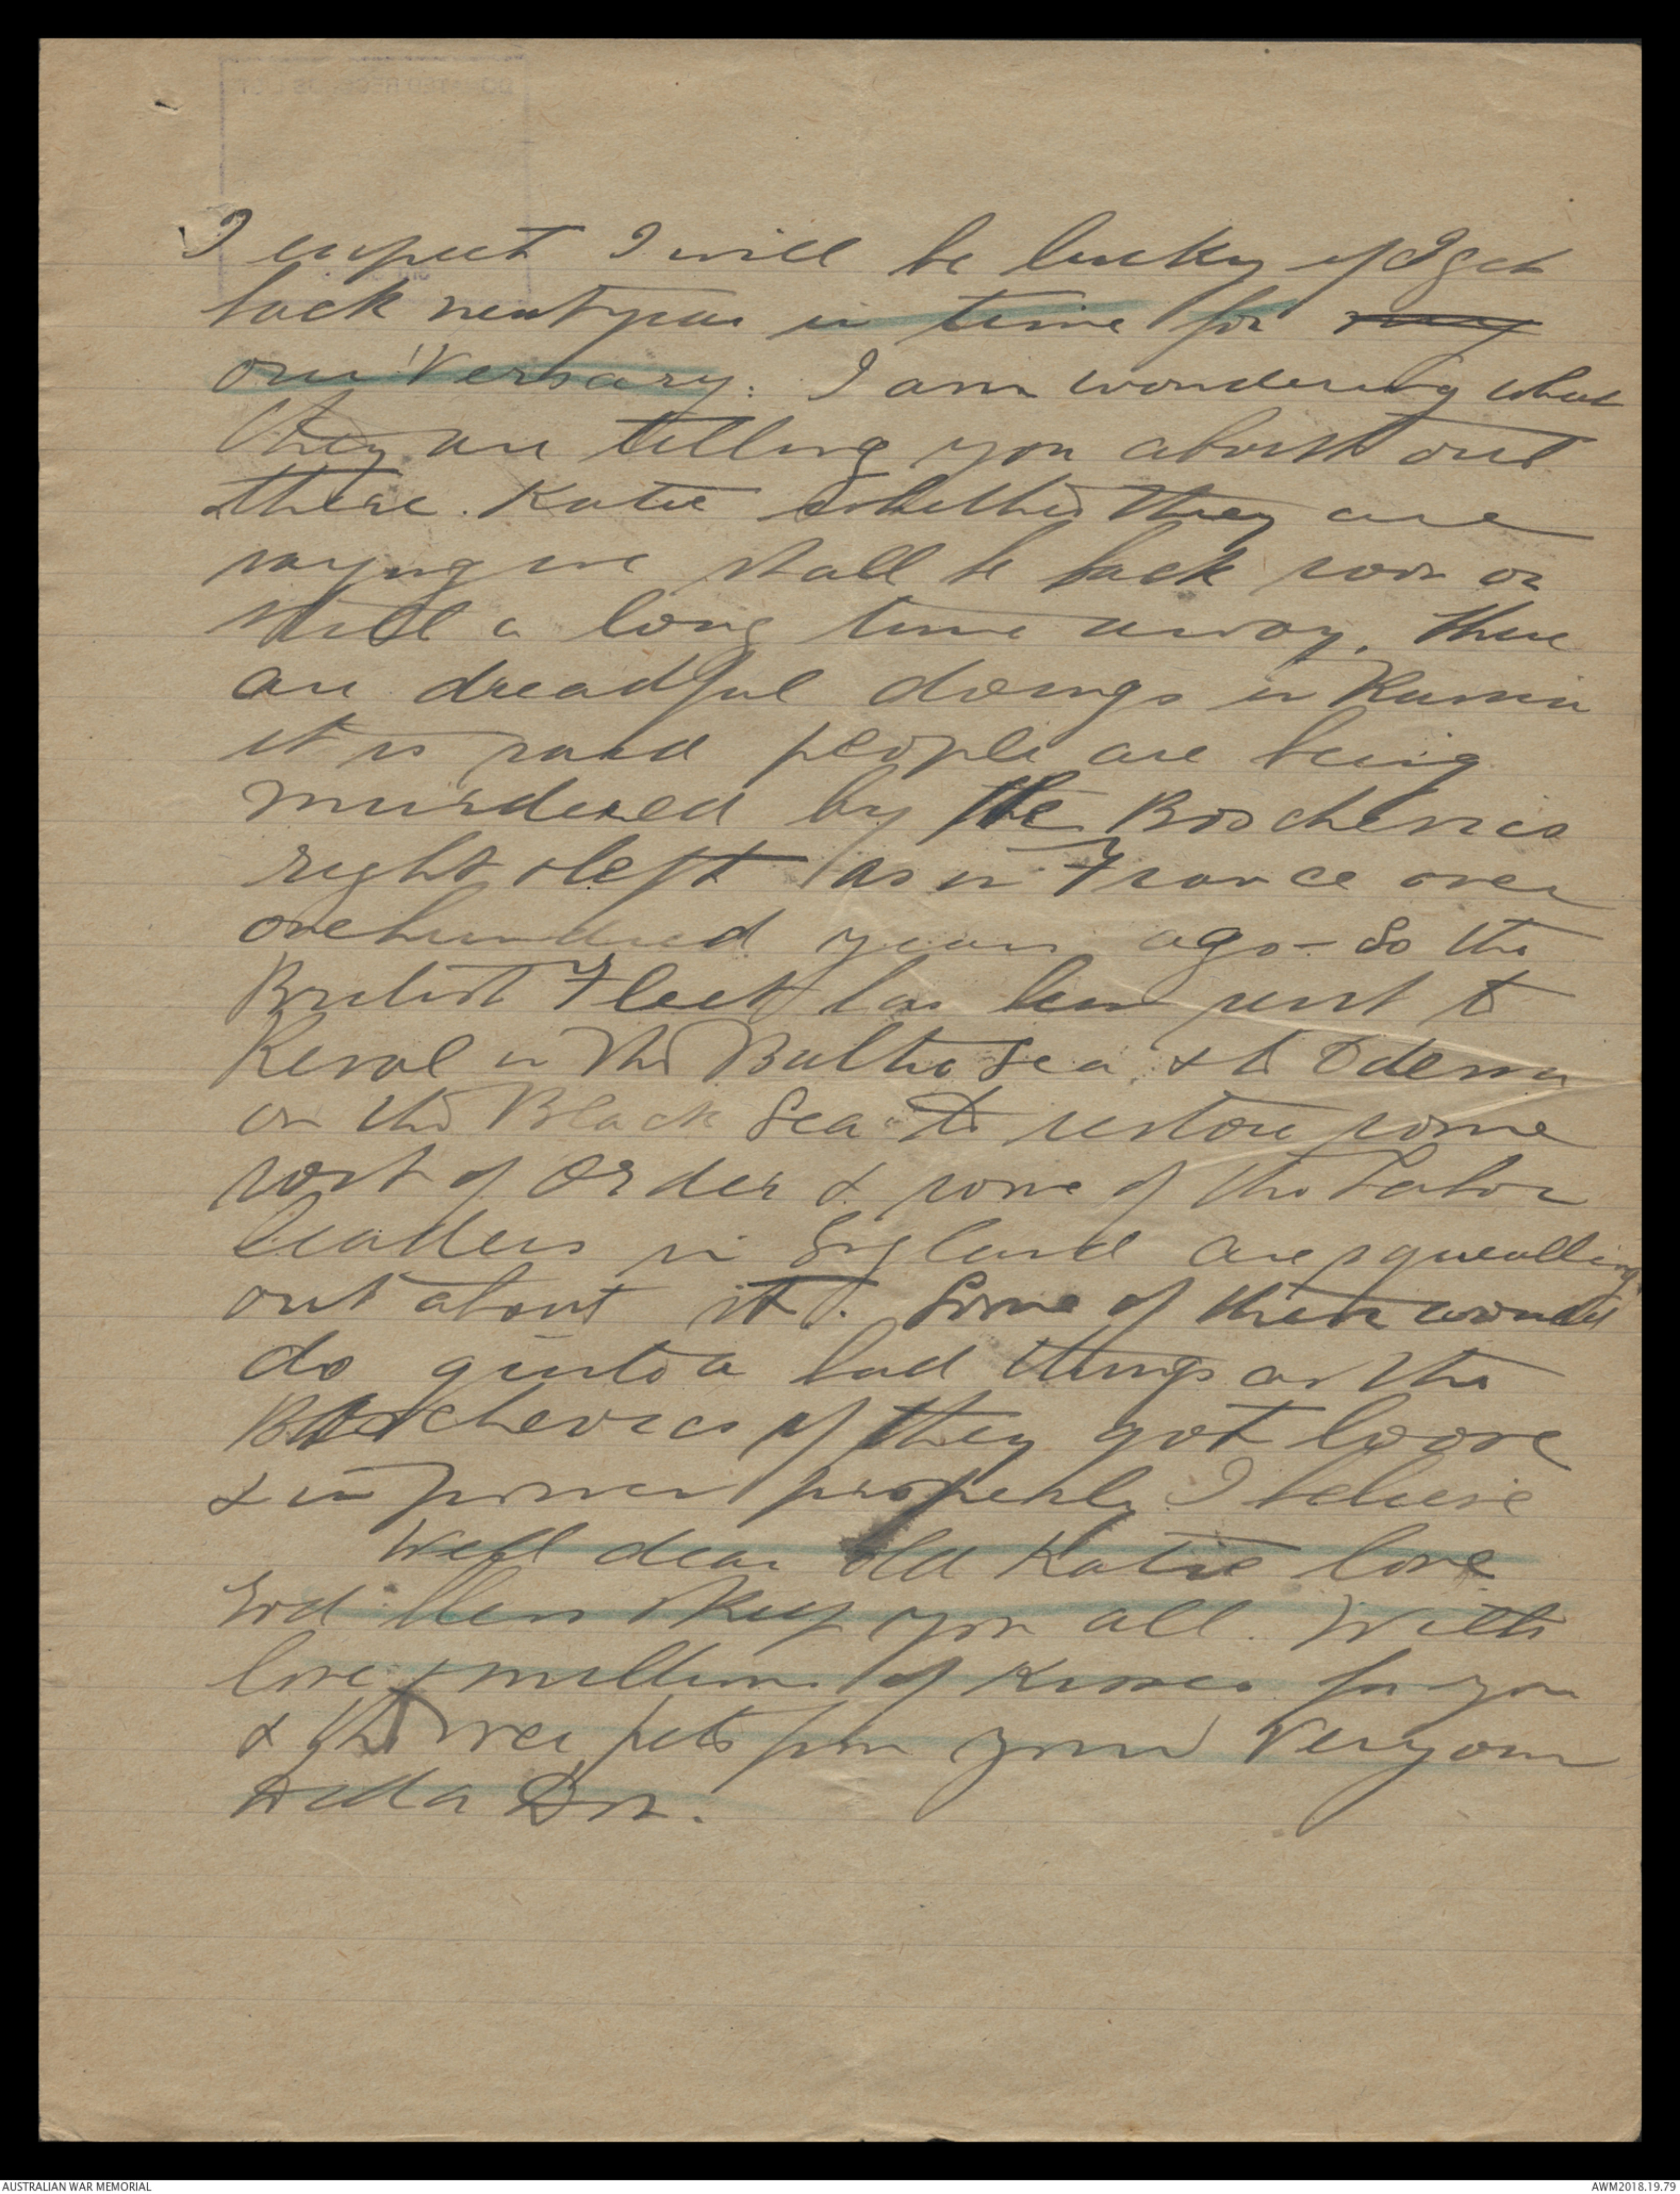 I expect I will be lucky if I get
back next year in time for my
our 'Versary. I am wondering what
they are telling you about out
there. Katie whether they are
saying we shall be back soon or
still a long time away. There
are dreadful doings in Russia
it is said people are being
murdered by the Boschevics
right & left as in France over
onehundred years ago - So the
British Fleet has been sent to
Reval in the Baltic Sea, & to Odessa
on the Black Sea to restore some
sort of order & some of the Labor
leaders in England are squealling
out about it. Some of them would
do quite a bad things as the
Boschevics if they got loose
& in power properly I believe
Well dear old Katie love
God bless & keep you all. With
love & millions of Kisses for you
& the wee pets from your Very own
Dor.
AUSTRALIAN WAR MEMORIAL
AWM2018.19.79